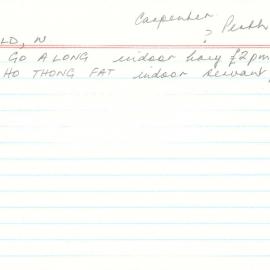 Carpenter
? Perth
LD, N
GO A LONG indoor boy £2 pm
HO THONG FAT indoor servant